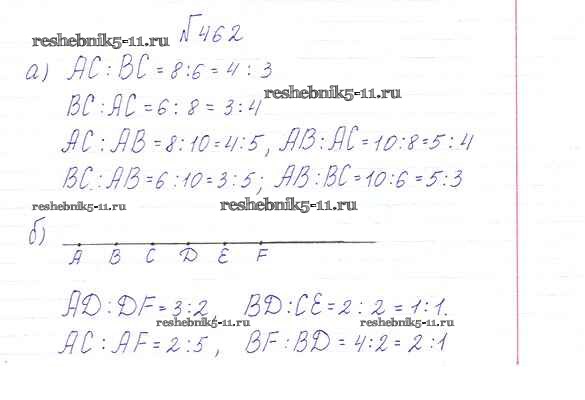 №462
reshebnik5-11.ru
а) AC : BC = 8:6 = 4 : 3
reshebnik5-11.ru
BC : AC = 6 : 8 = 3:4
AC : AB = 8:10 = 4:5, AB : AC = 10:8 = 5:4
BC : AB = 6:10 = 3:5; AB : BC = 10:6 = 5:3
reshebnik5-11.ru reshebnik5-11.ru
б)
A B C D E F
AD : DF = 3:2, BD : CE = 2 : 2 = 1:1.
reshebnik5-11.ru reshebnik5-11.ru
AC : AF = 2:5, BF : BD = 4:2 = 2:1